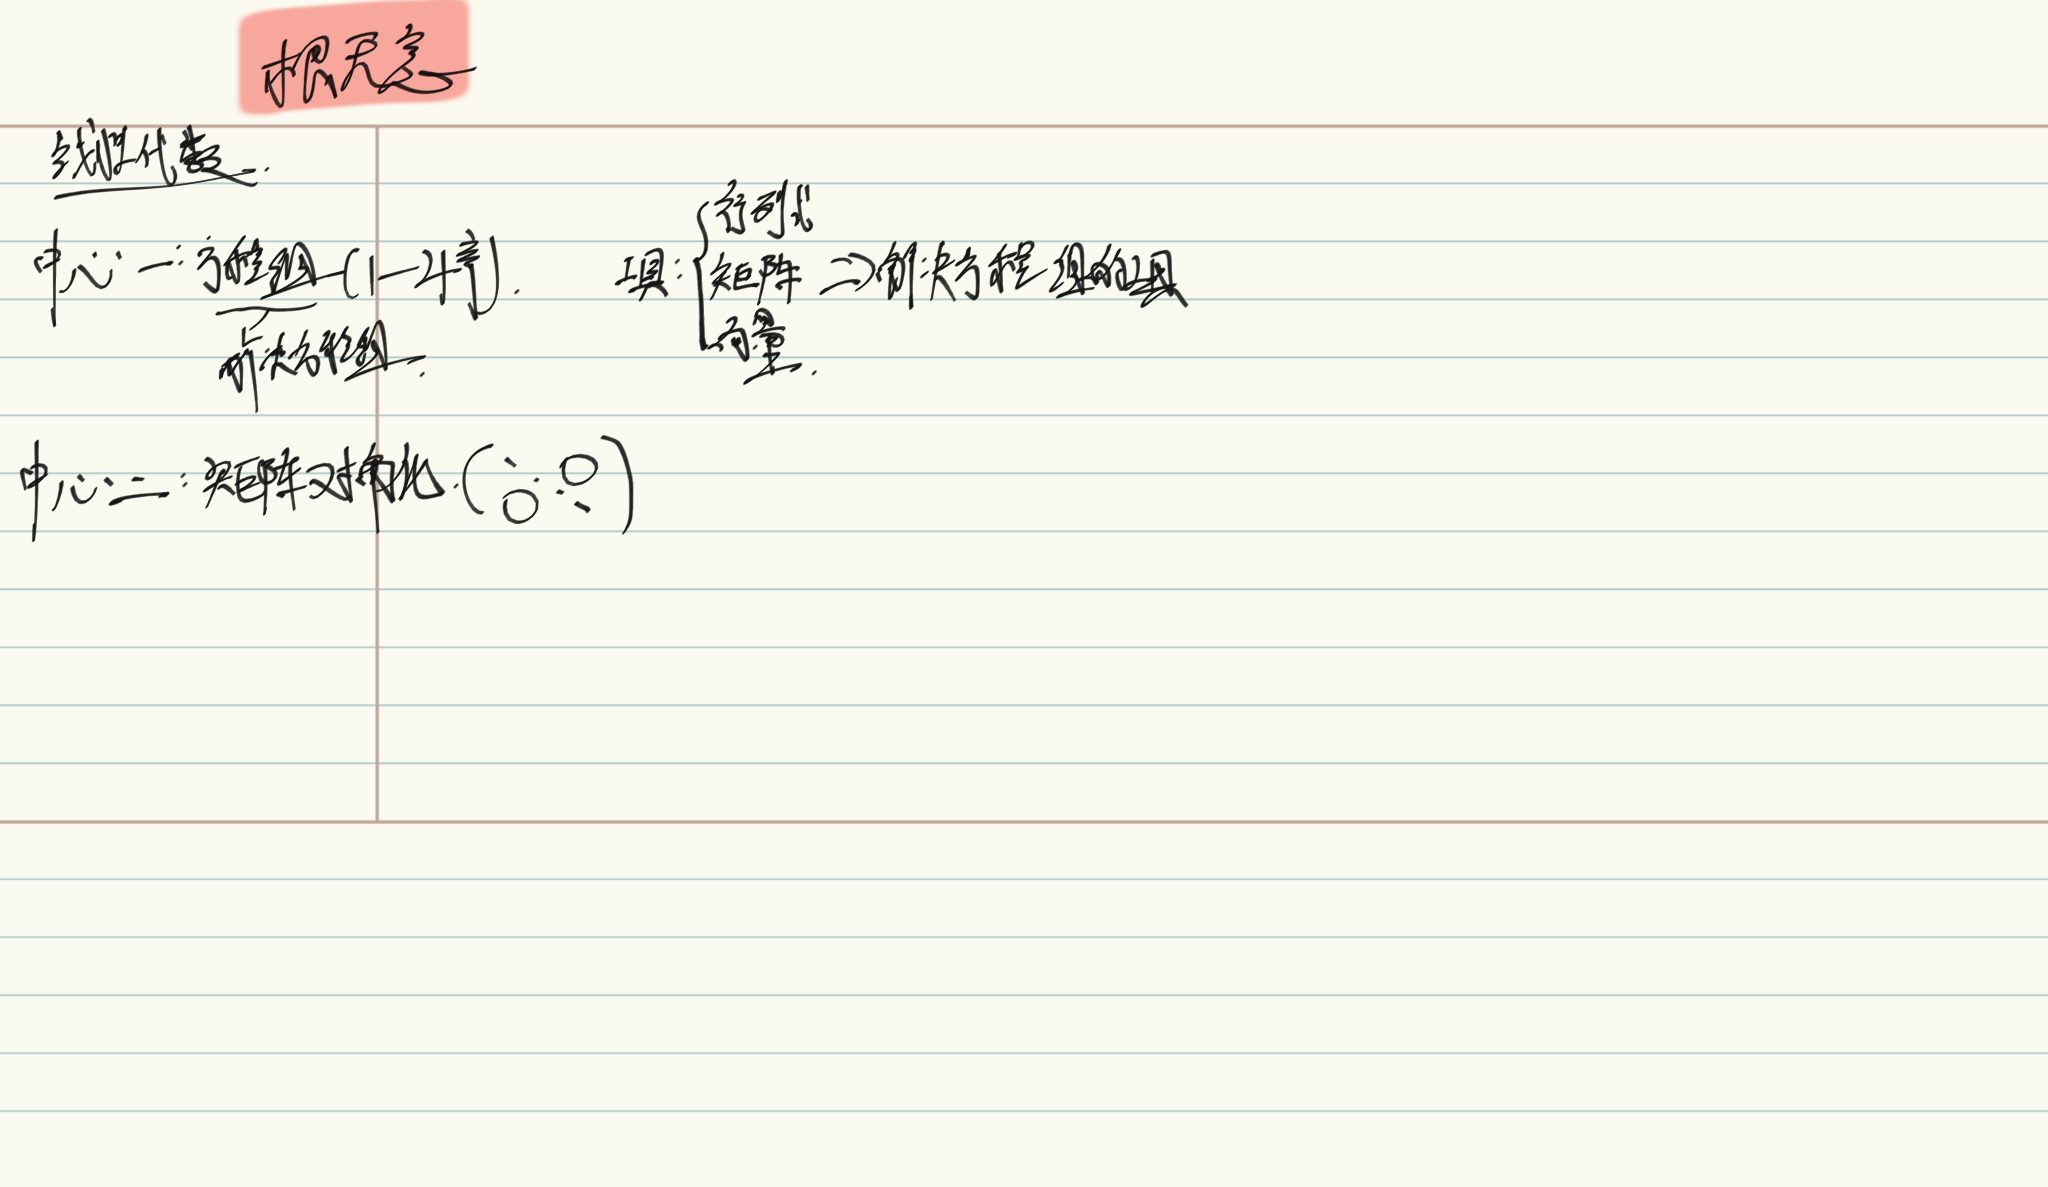 线性代数.
中心一:方程组(1—4章).
解决方程组.
工具:
行列式
矩阵 ⇒解决方程组的工具
向量.
中心二:矩阵对角化.